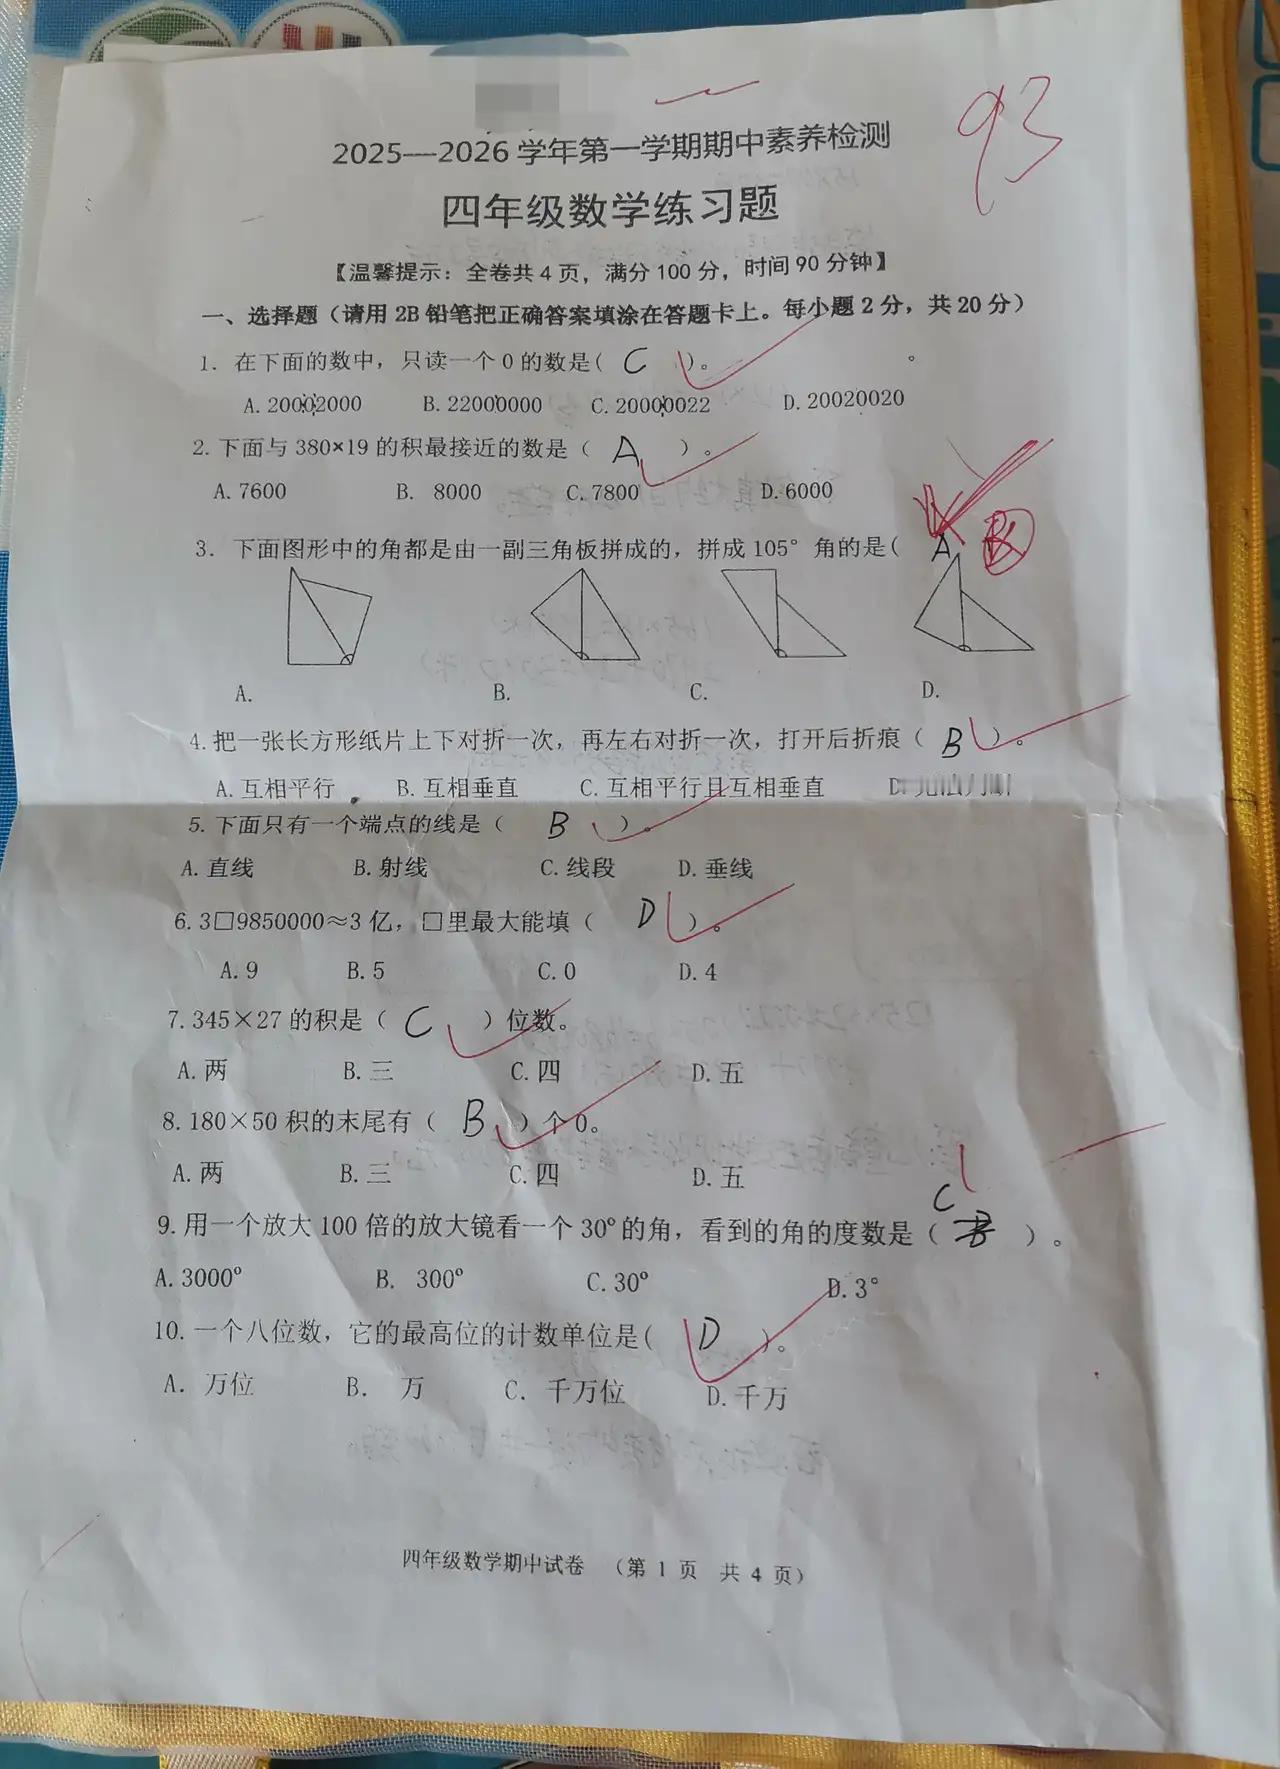 93
2025—2026 学年第一学期期中素养检测
四年级数学练习题
【温馨提示：全卷共 4 页，满分 100 分，时间 90 分钟】
一、选择题（请用 2B 铅笔把正确答案填涂在答题卡上。每小题 2 分，共 20 分）
1. 在下面的数中，只读一个 0 的数是( C )。
A. 20002000 B. 22000000 C. 20000022 D. 20020020
2. 下面与 380×19 的积最接近的数是（ A ）。
A. 7600 B. 8000 C. 7800 D. 6000
3. 下面图形中的角都是由一副三角板拼成的，拼成 105° 角的是( A B
A. B. C. D.
4. 把一张长方形纸片上下对折一次，再左右对折一次，打开后折痕（ B ）。
A. 互相平行 B. 互相垂直 C. 互相平行且互相垂直 D.
5. 下面只有一个端点的线是（ B ）。
A. 直线 B. 射线 C. 线段 D. 垂线
6. 3□9850000≈3 亿，□里最大能填（ D ）。
A. 9 B. 5 C. 0 D. 4
7. 345×27 的积是（ C ）位数。
A. 两 B. 三 C. 四 D. 五
8. 180×50 积的末尾有（ B ）个 0。
A. 两 B. 三 C. 四 D. 五
9. 用一个放大 100 倍的放大镜看一个 30° 的角，看到的角的度数是（ C B ）。
A. 3000° B. 300° C. 30° D. 3°
10. 一个八位数，它的最高位的计数单位是( D )。
A. 万位 B. 万 C. 千万位 D. 千万
四年级数学期中试卷 （第 1 页 共 4 页）